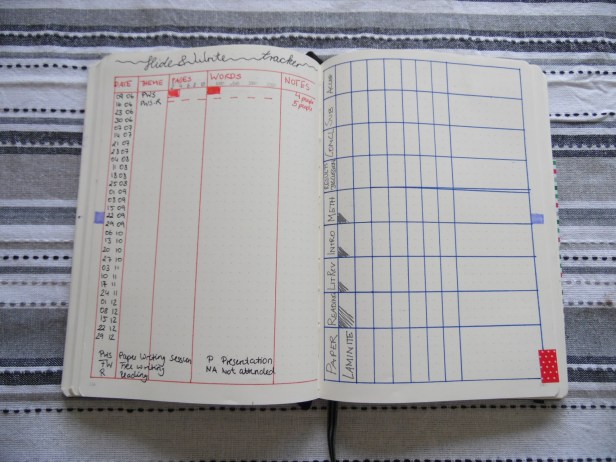 Hide & Write tracker
DATE THEME PAGES WORDS NOTES
09 06 PWS 4 people
16 06 PWS.R 5 people
23 06
30 06
07 07
14 07
21 07
28 07
04 08
11 08
18 08
25 08
01 09
08 09
15 09
22 09
29 09
06 10
13 10
20 10
27 10
03 11
10 11
17 11
24 11
01 12
08 12
15 12
PWS Paper Writing Session
FW Free writing
R Reading
P Presentation
NA Not attended
SUB
CONCL
RESULTS
DISCUSSION
METH
INTRO
LIT REV
READING
PAPER
LAMINITE